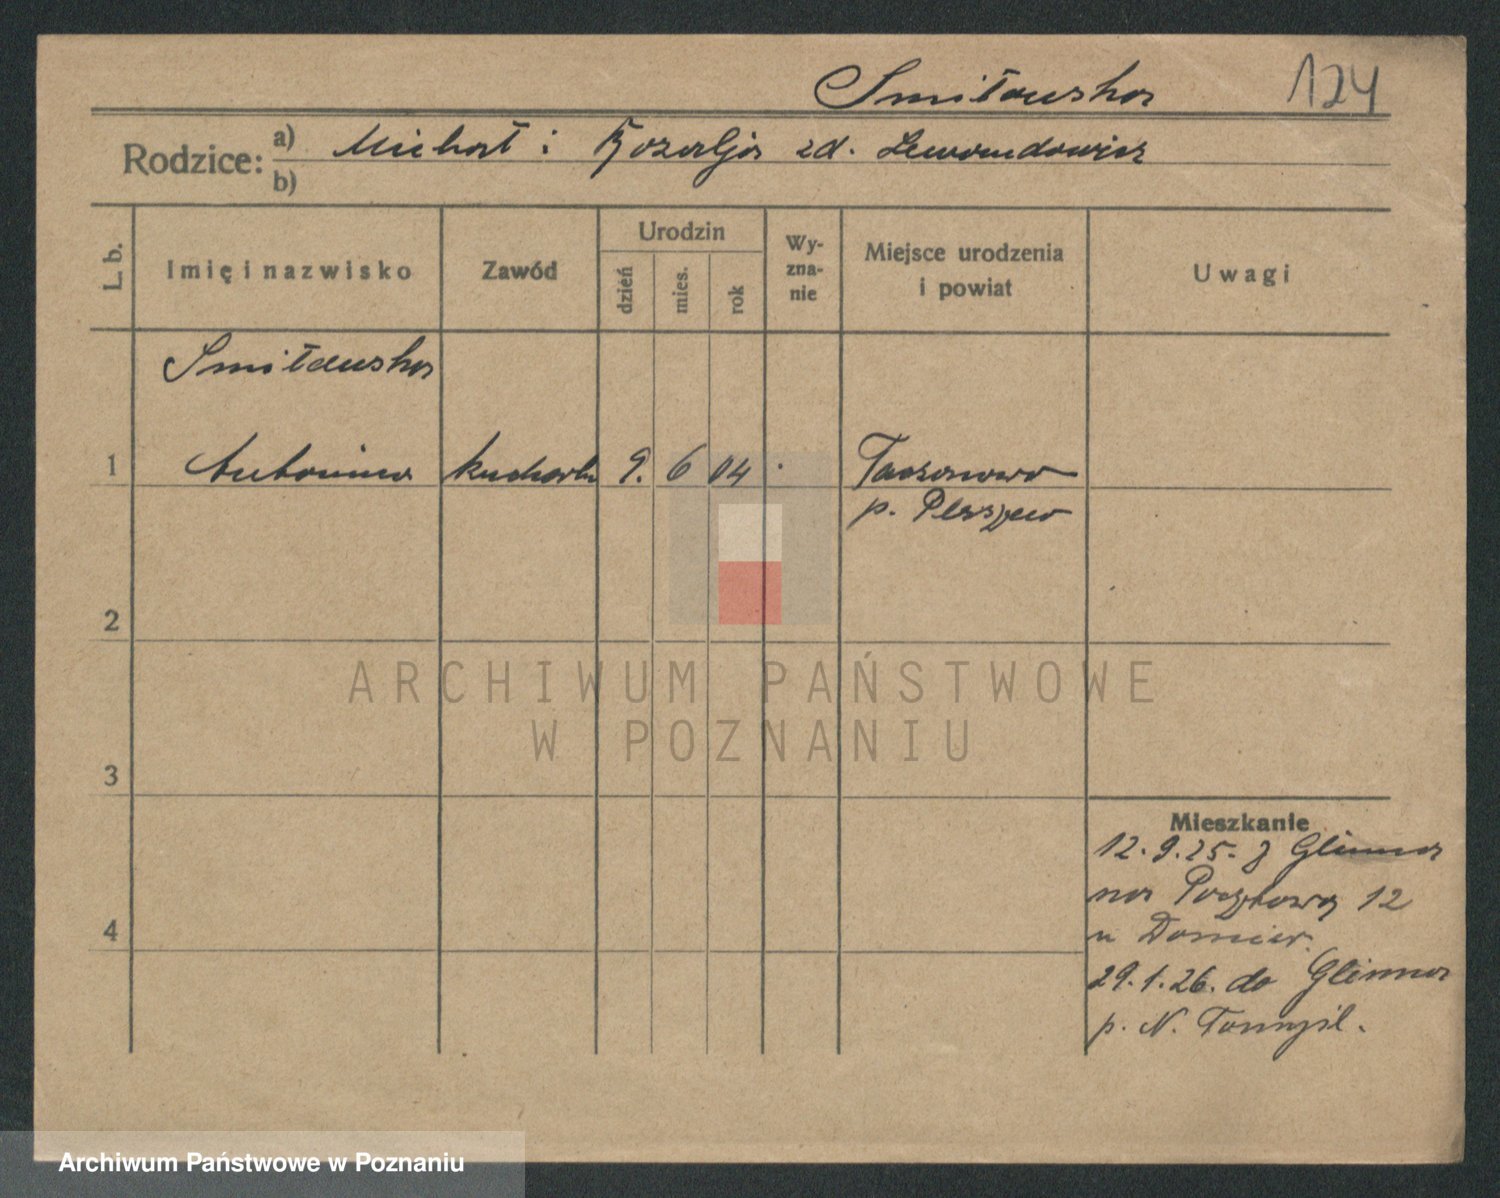 Smitowska 124
Rodzice: a) Michał i Rozalja zd. Lewandowicz
b)
L. b. Imię i nazwisko Zawód Urodzin dzień mies. rok Wy-zna-nie Miejsce urodzenia i powiat Uwagi
Smitowska
1 Antonina kucharka 9. 6 04 Taczanowo
p. Pleszew
2
ARCHIWUM PAŃSTWOWE
W POZNANIU
3
Mieszkanie
12.9.25. z Glinna
na Pocztową 12
u
4
29.1.26. do Glinna
p. N. Tomyśl.
Archiwum Państwowe w Poznaniu